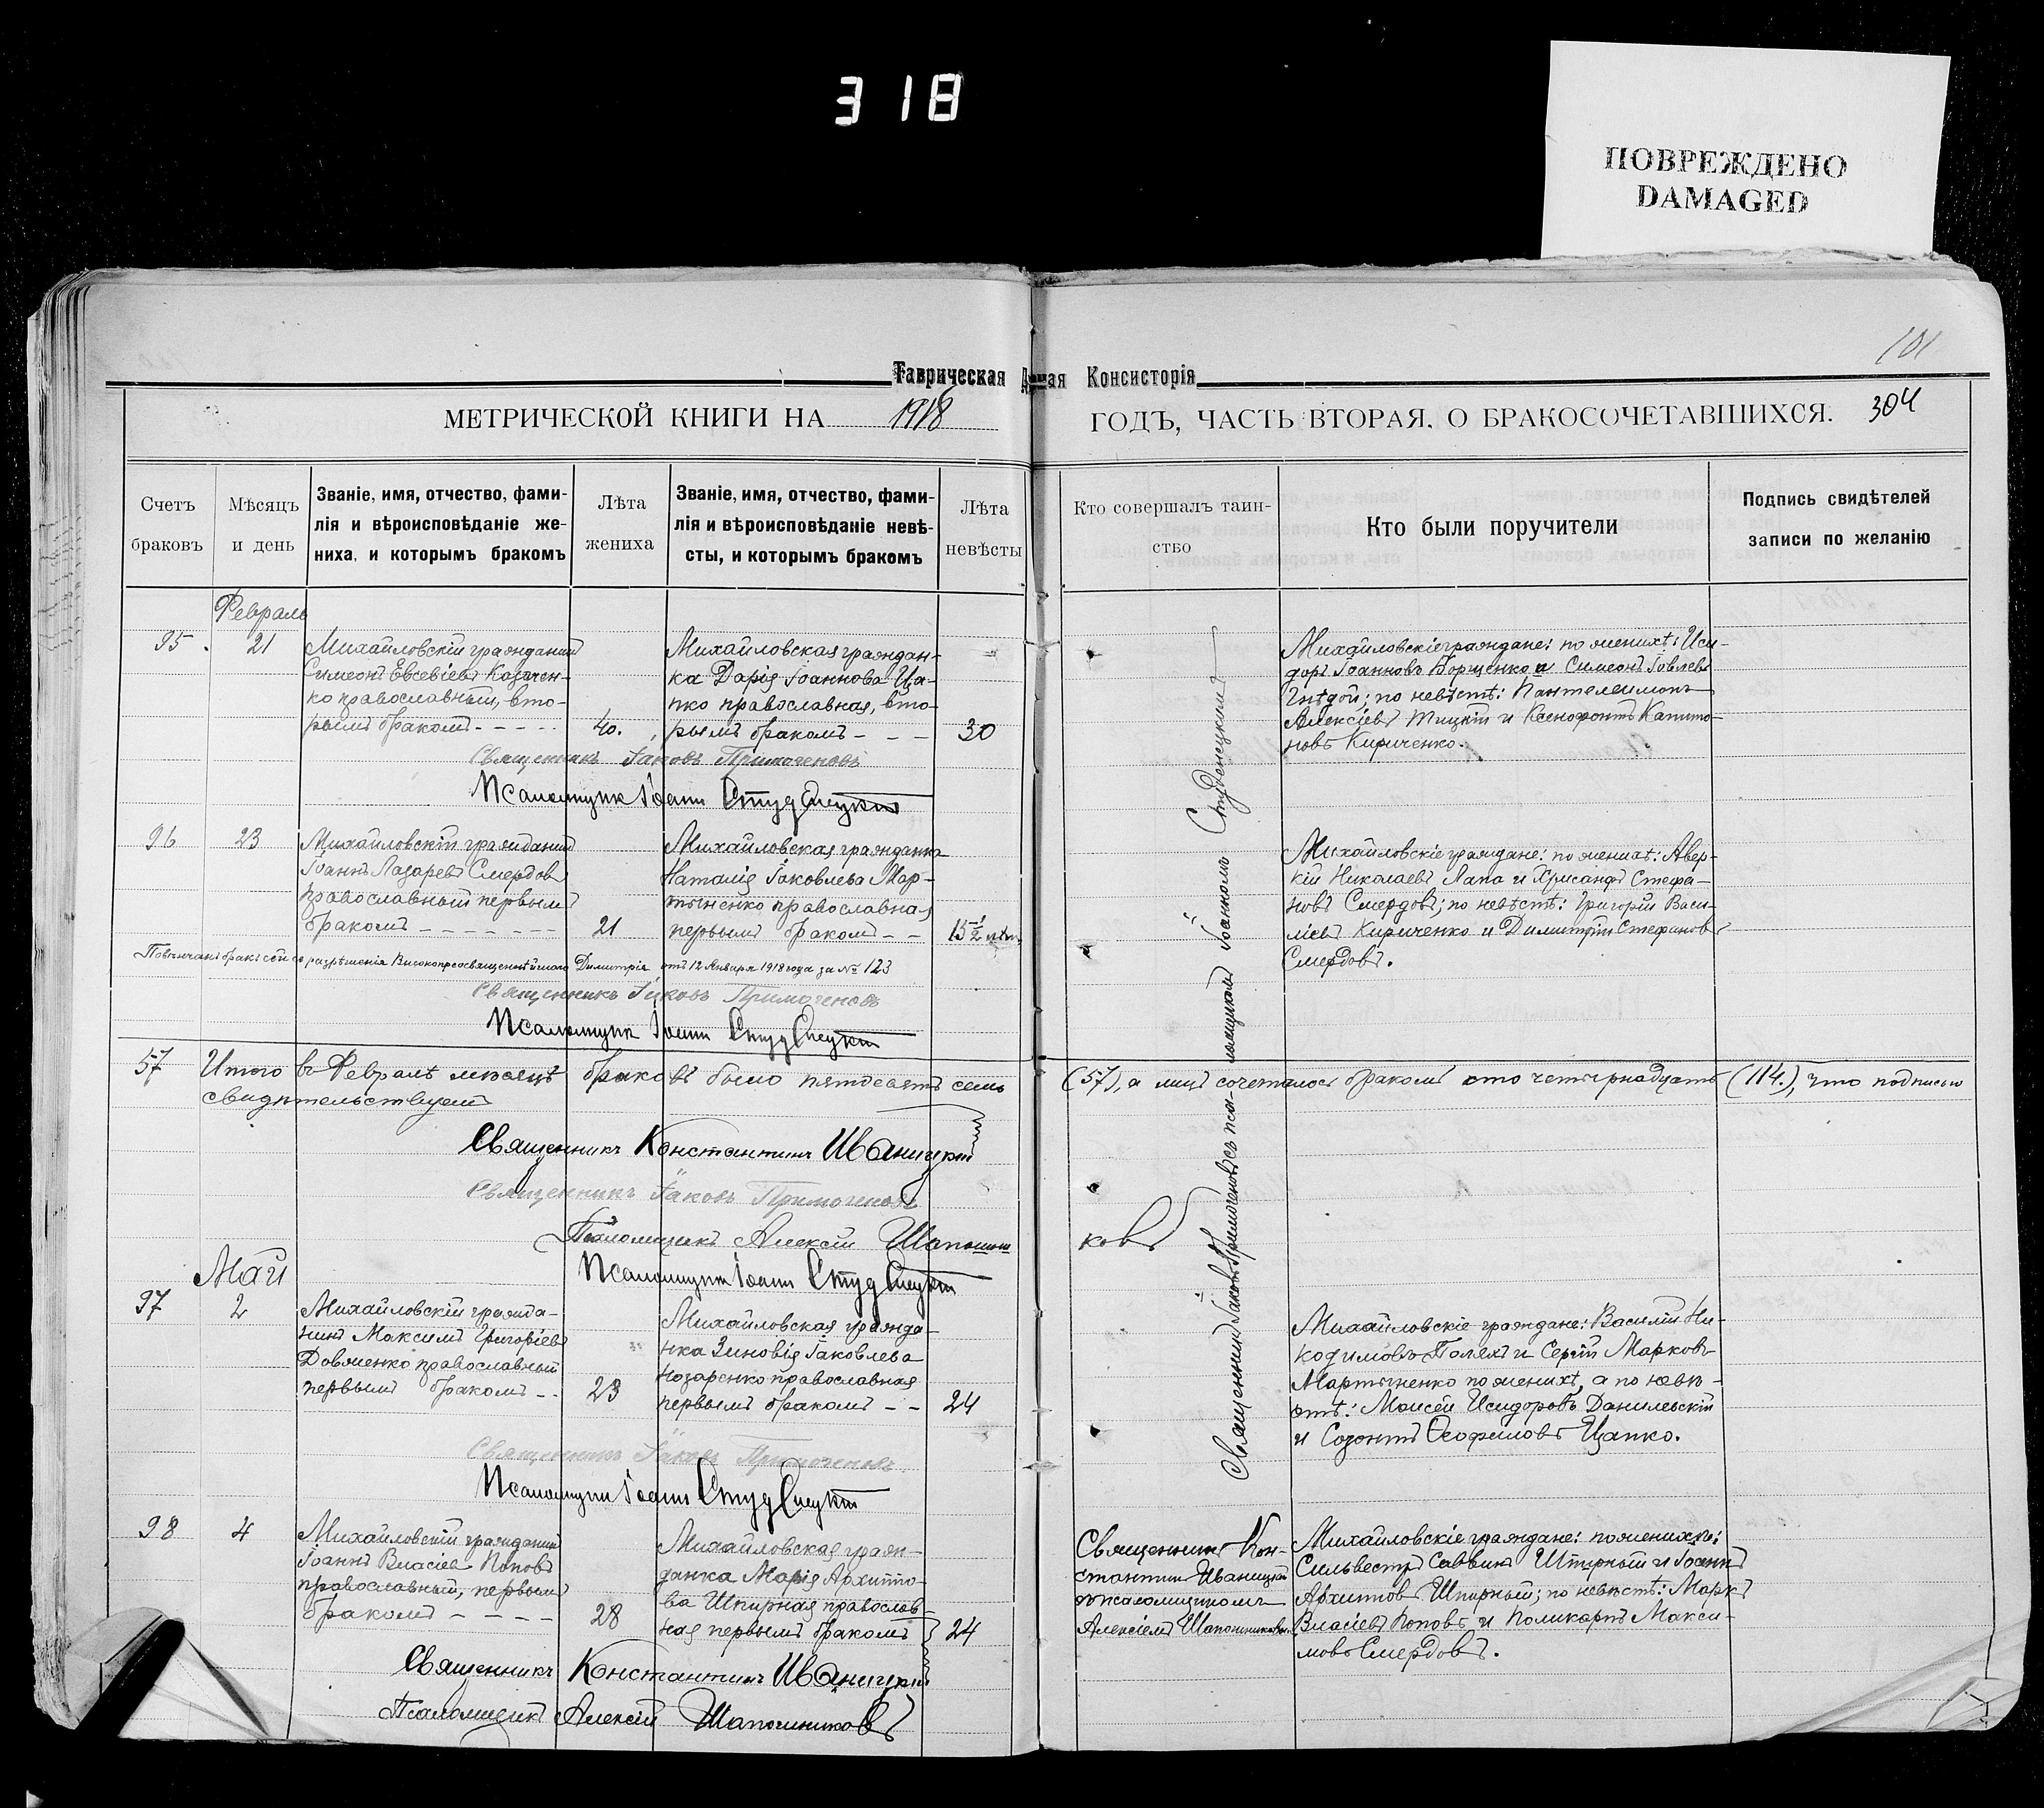 318
ПОВРЕЖДЕНО
DAMAGED
101
Таврическая Д ная Консисторія
МЕТРИЧЕСКОЙ КНИГИ НА 1918 ГОДЪ, ЧАСТЬ ВТОРАЯ. О БРАКОСОЧЕТАВШИХСЯ. 304
Счетъ браковъ
Мѣсяцъ и день
Званіе, имя, отчество, фами-
лія и вѣроисповѣданіе же-
ниха, и которымъ бракомъ
Лѣта жениха
Званіе, имя, отчество, фами-
лія и вѣроисповѣданіе невѣ-
сты, и которымъ бракомъ
Лѣта невѣсты
Кто совершалъ таин-
ство
Кто были поручители
Подпись свидѣтелей
записи по желанію
Февраль
95. 21
Михайловскій гражданинъ
Симеонъ Евсевіевъ Казачен-
ко православный, вто-
рымъ бракомъ
40.
Михайловская граждан-
ка Дарія Іоаннова Ца-
пко православная, вто-
рымъ бракомъ
30
Михайловскіе граждане: по женихѣ: Иси-
доръ Іоанновъ Борщенко и Симеонъ Іовлевъ
Гнѣдой; по невѣстѣ: Пантелеимонъ
Алексіевъ Тицкій и Ксенофонтъ Капито-
новъ Кириченко.
Священникъ Іаковъ Примогеновъ
Псаломщик Іоанн Студенецкій
96 23
Михайловскій гражданинъ
Іоаннъ Лазаревъ Смердовъ
православный первымъ
бракомъ
21
Михайловская гражданка
Наталія Іаковлева Мар-
тыненко православная
первымъ бракомъ
15 1/2 лѣтъ
Михайловскіе граждане: по женихѣ: Авер-
кій Николаевъ Лапа и Хрисанфъ Стефа-
новъ Смердовъ; по невѣстѣ: Григорій Васи-
ліевъ Кириченко и Димитрій Стефановъ
Смердовъ.
Повѣнчанъ бракъ сей съ разрѣшенія Высокопреосвященнѣйшаго Димитрія отъ 12 Января 1918 года за № 123
Священникъ Іаковъ Примогеновъ
Псаломщик Іоанн Студенецкій
57 Итого въ Февралѣ мѣсяцѣ браковъ было пятдесятъ семь (57), а лицъ сочеталось бракомъ сто четырнадцать (114.), что подписью
свидѣтельствуемъ
Священникъ Константинъ Иваницкій
Священникъ Іаковъ Примогеновъ
Псаломщикъ Алексій Шапошни
ковъ
Псаломщик Іоанн Студенецкій
Священникъ Іаковъ Примогеновъ съ псаломщикомъ Іоанномъ Студенецкимъ
Май
97 2
Михайловскій гражда-
нинъ Максимъ Григоріевъ
Довженко православный
первымъ бракомъ
23
Михайловская гражда-
нка Зиновія Іаковлева
Назаренко православная
первымъ бракомъ
24
Михайловскіе граждане: Василій Ни-
кодимовъ Полехъ и Сергій Марковъ
Мартыненко по женихѣ, а по невѣ-
стѣ: Моисей Исидоровъ Данилевскій
и Созонтъ Ѳеофиловъ Цапко.
Священникъ Іаковъ Примогеновъ
Псаломщик Іоанн Студенецкій
98 4
Михайловскій гражданинъ
Іоаннъ Власіевъ Поповъ
православный, первымъ
бракомъ
28
Михайловская граж-
данка Марія Архиппо-
ва Шпирная православ-
ная первымъ бракомъ
24
Священникъ Кон-
стантинъ Иваницкій
съ псаломщикомъ
Алексіемъ Шапошниковымъ
Михайловскіе граждане: по женихѣ:
Сильвестръ Саввинъ Шпирный и Іоаннъ
Архиповъ Шпирный; по невѣстѣ: Маркъ
Власіевъ Поповъ и Поликарпъ Макси-
мовъ Смердовъ.
Священникъ Константинъ Иваницкій
Псаломщикъ Алексій Шапошниковъ